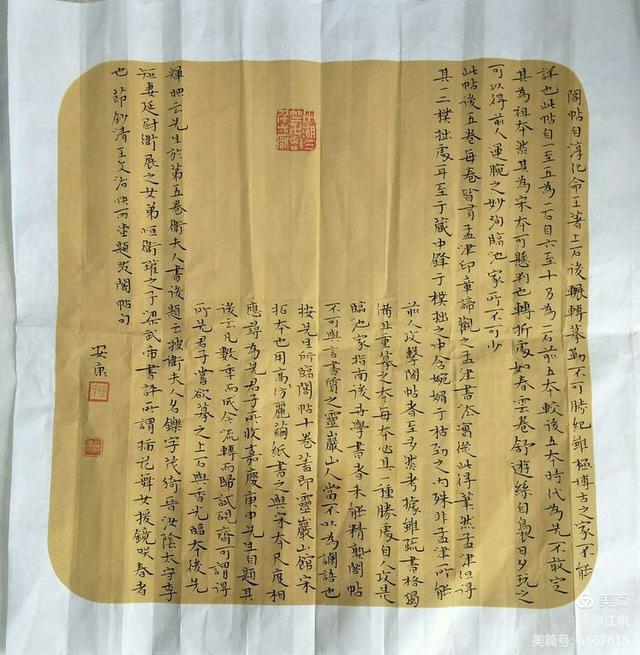 閣帖自淳化命王著上石後輾轉摹勒不可勝紀雖極博古之家不能
詳也此帖自一至五為一石自六至十另為一石前五本較後五本時代為先不敢定
其為祖本然其為宋本可懸判也轉折處如春雲卷舒遊絲自裊日夕玩之
可以得前人運腕之妙洵臨池家所不可少
此帖後五卷每卷皆有孟津印章諦觀之孟津書派實從此得筆然孟津但得
其一二樸拙處耳至于藏中鋒于樸拙之中含婉媚于枯勁之內殊非孟津所能
前人攻擊閣帖者至多然考據雖疏書格獨
備且重摹之本每本必具一種勝處自人攻是
臨池家指南後古學書者未能精熟閣帖
不可與言書質之靈巖山人當不以為讕語也
按先生所臨閣帖十卷蓋即靈巖山館宋
拓本也用高江麗繭紙書之與宋本尺度相
應尋為先君子所收嘉慶庚申先生自題其
後云凡數年而成今流轉而歸試硯齋可謂得
所先君子嘗欲摹之上石與香光臨本後先
輝映云先生於第五卷衛夫人書後題云按衛夫人名鑠字茂猗晉汝陰太守李
矩妻廷尉衛展之女弟恒衛瓘之子梁武帝書評所謂插花舞女援鏡笑春者
也 節鈔清王文治快雨堂題跋閣帖句
安康
美篇
@江帆
美篇号:6867615